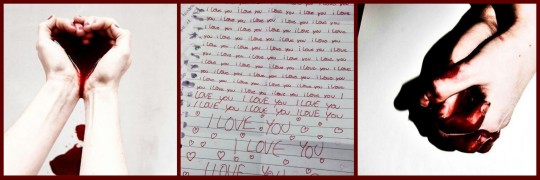 you i Love you i Love you i Love you i Love
you i Love you i Love you i Love you i Love
you i Love you i Love you i Love you i Love
you i Love you i Love you i Love you i Love
you i Love you i Love you i Love you i Love
you i Love you i Love you i Love you i Love
you i Love you i Love you i Love you i Love
you i Love you i Love you i Love you i Love
LOVE YOU I LOVE YOU I LOVE YOU
I LOVE YOU I LOVE YOU I LOVE YOU
I LOVE YOU
I LOVE YOU
I LOVE YOU